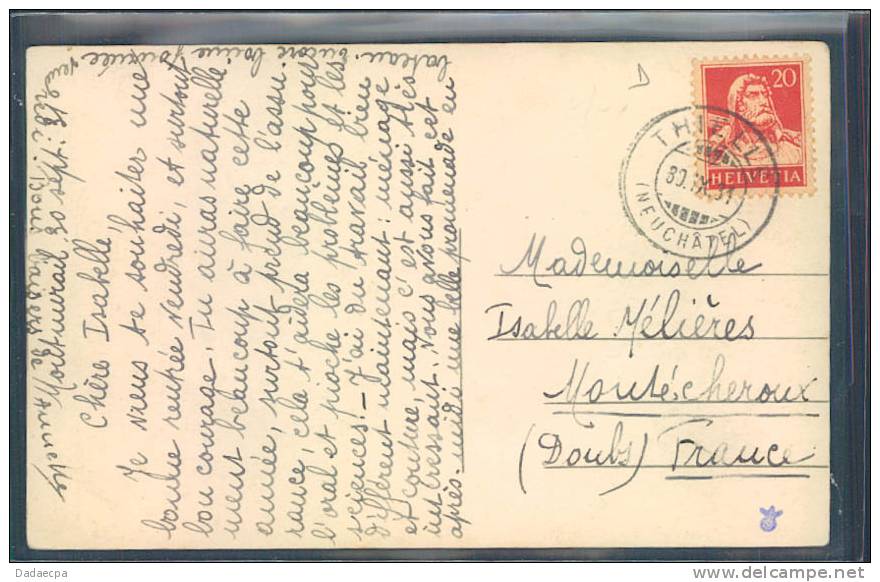 Montmirail, 30 sept.
Chère Isabelle,
Je viens te souhaiter une
bonne rentrée vendredi, et surtout
bon courage. Tu auras naturelle
ment beaucoup à faire cette
année, surtout prend de l'assu
rance, cela t'aidera beaucoup pour
l'oral et pioche les problèmes et les
sciences! - J'ai du travail bien
différent maintenant: ménage
et couture, mais c'est aussi très
intéressant. Nous avons fait cet
après-midi une belle promenade en
bateau. encore bonne journée
vendredi! Doux baisers de
THIELLE
30.IX.31
(NEUCHÂTEL)
20
HELVETIA
Mademoiselle
Isabelle Mélières
Montécheroux
(Doubs) France
Dadaecpa
www.delcampe.net